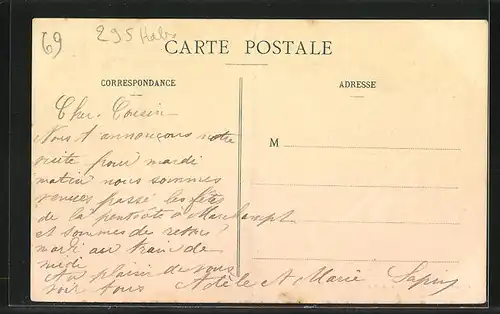 69
295 Hab
CARTE POSTALE
CORRESPONDANCE
ADRESSE
M
Cher Cousin
Nous t annoncons notre
visite pour mardi
matin nous sommes
venues passé les fêtes
de la pentecôte à Marchampt
et sommes de retour
mardi au train de
midi
Au plaisir de vous
voir tous Adèle et Marie